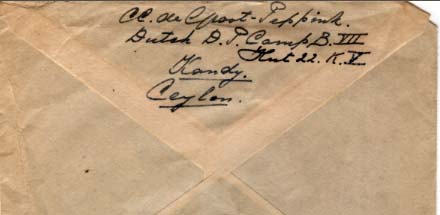 C.C. de Groot-Peppink.
Dutch D.P. Camp, B. VII
Hut 22. K. V.
Kandy.
Ceylon.